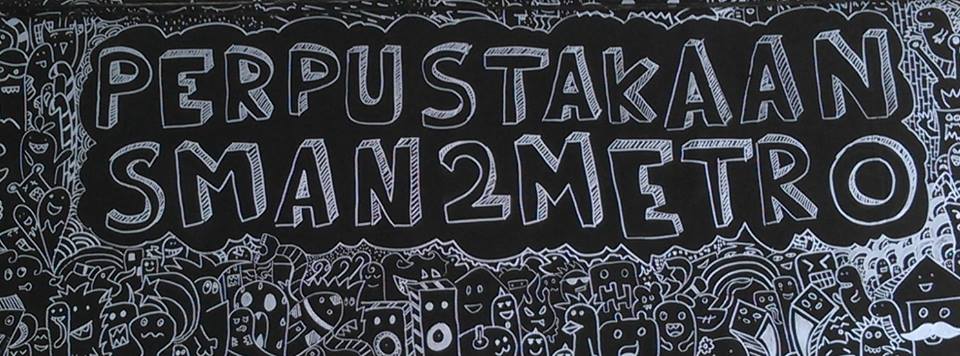 PERPUSTAKAAN
SMAN 2 METRO